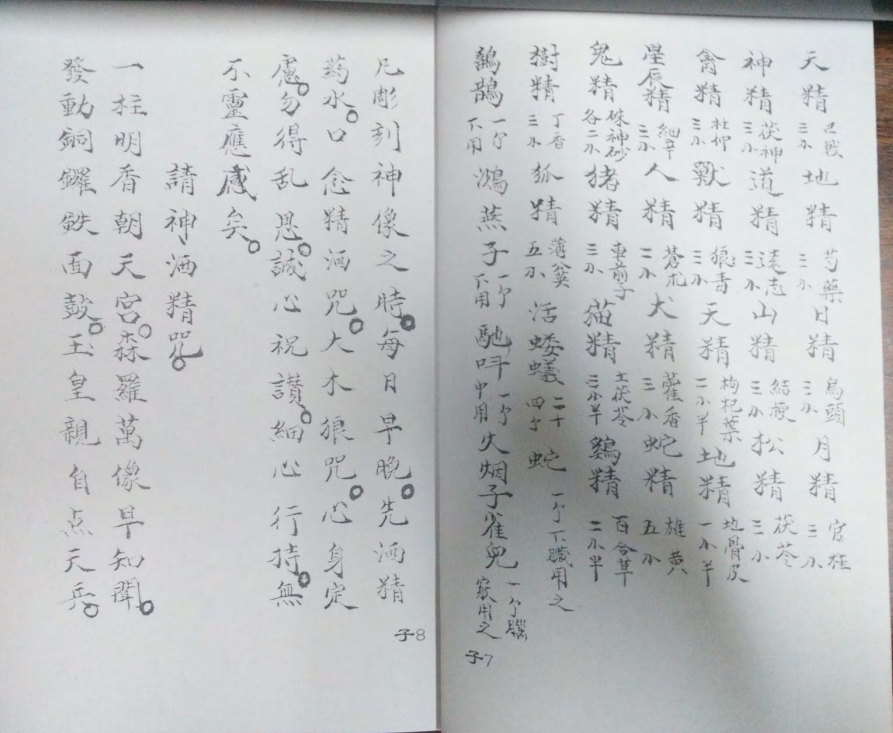 天精 三小 巴戟 地精 三小 芍藥 日精 三小 烏頭 月精 三小 官桂
神精 三小 茯神 道精 三小 遠志 山精 三小 結梗 松精 三小 茯苓
禽精 三小 杜仲 獸精 三小 狼毒 天精 二小半 枸杞葉 地精 一小半 地骨皮
星辰精 三小 細辛 人精 二小 蒼朮 犬精 三小 藿香 蛇精 五小 雄黃
鬼精 各二小 硃神砂 猪精 三小 車前子 猫精 三小半 土茯苓 鷄精 二小半 百合草
樹精 三小 丁香 狐精 五小 薄荷 活蝼蟻 四十 二十 蛇 一个下臟用之
鵲 一个下用 鴻燕子 一个下用 一个中用 火烟子雀兒 一个腦 家用之
子7
凡彫刻神像之時每日早晚先洒精
葯水口念精洒咒大木狼咒心身定
慮勿得乱思誠心祝讚細心行持無
不靈應感矣
請神洒精咒
一柱明香朝天宮森羅萬像早知聞
發動銅鑼鉄面鼓玉皇親自点天兵
子8